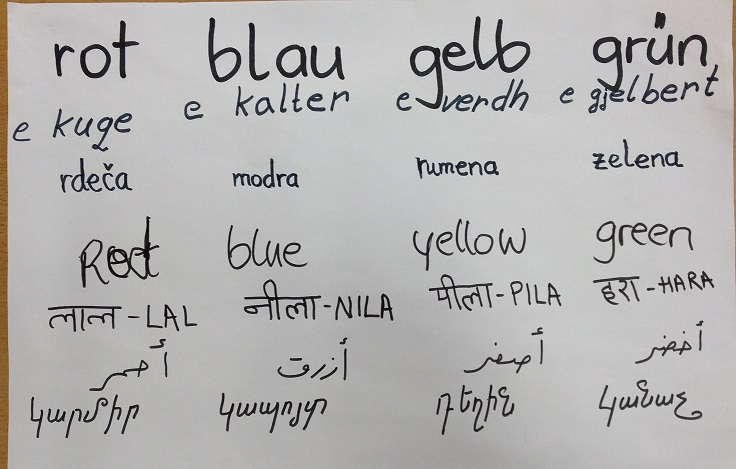 rot blau gelb grün
e kuqe e kalter e verdh e gjelbert
rdeča modra rumena zelena
Red blue yellow green
लाल - LAL नीला - NILA पीला - PILA हरा - HARA
أحمر أزرق أصفر أخضر
կարմիր կապույտ դեղին կանաչ